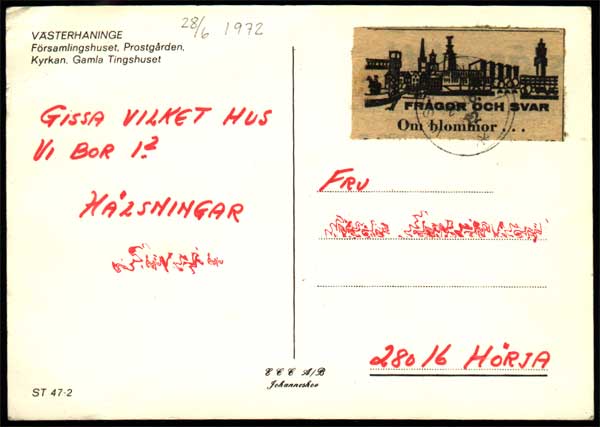 28/6 1972
VÄSTERHANINGE
Församlingshuset, Prostgården,
Kyrkan, Gamla Tingshuset
FRÅGOR OCH SVAR
Om blommor . . .
GISSA VILKET HUS
VI BOR I?
HÄLSNINGAR
FRU
280 16 HÖRJA
E C C A/B
Johanneshov
ST 47-2